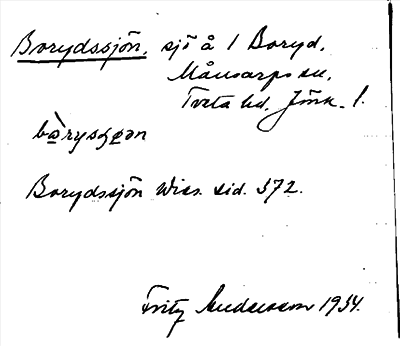 Borydssjön, sjö å 1 Boryd,
Månsarps sn,
Tveta hd, Jönk. l.
bo̠̊̀rysʒøən
Borydssjön Wies. sid. 372.
Fritz Andersson 1934.